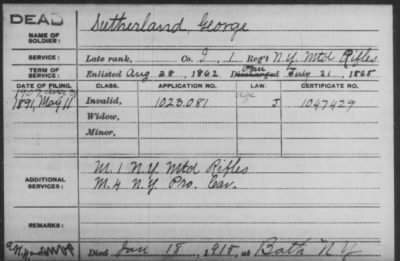 DEAD
NAME OF SOLDIER:
Sutherland, George
SERVICE:
Late rank, Co. I, 1 Reg't N.Y. Mtd Rifles
TERM OF SERVICE:
Enlisted Aug 28, 1862 Discharged July 21, 1865
DATE OF FILING. CLASS. APPLICATION NO. LAW. CERTIFICATE NO.
1891, May 11 Invalid, 1023.081 J 1047429
Widow,
Minor,
ADDITIONAL SERVICES:
M. 1 N.Y. Mtd Rifles
M. 4 N.Y. Pro. Cav.
REMARKS:
Died Jan 18, 1918, at Bath N Y